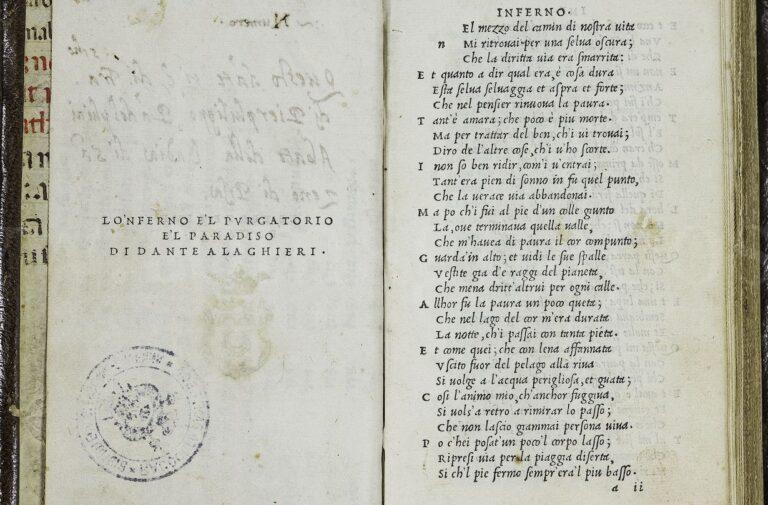 Numero
Questo
Abate della
LO'NFERNO E'L PVRGATORIO
E'L PARADISO
DI DANTE ALAGHIERI.
INFERNO.
El mezzo del camin di nostra uita
n Mi ritrouai per una selua oscura;
Che la diritta uia era smarrita:
E t quanto a dir qual era, è cosa dura
Esta selua seluaggia et aspra et forte;
Che nel pensier rinuoua la paura.
T ant'è amara; che poco è piu morte.
Ma per trattar del ben, ch'i ui trouai;
Diro de l'altre cose, ch'i u'ho scorte.
I non so ben ridir, com'i u'entrai;
Tant'era pien di sonno in su quel punto,
Che la uerace uia abbandonai.
M a po ch'i fui al pie d'un colle giunto
La, oue terminaua quella ualle,
Che m'hauea di paura il cor compunto;
G uarda'in alto; et uidi le sue spalle
Vestite gia d'e raggi del pianeta,
Che mena dritt'altrui per ogni calle.
A llhor fu la paura un poco queta;
Che nel lago del cor m'era durata
La notte, ch'i passai con tanta pieta.
E t come quei; che con lena affannata
Vscito fuor del pelago alla riua
Si uolge a l'acqua perigliosa, et guata;
C osi l'animo mio, ch'anchor fuggiua,
Si uols'a retro a rimirar lo passo;
Che non lascio giammai persona uiua.
P o c'hei posat'un poco'l corpo lasso;
Ripresi uia per la piaggia diserta,
Si ch'l pie fermo sempr'era'l piu basso.
a ii